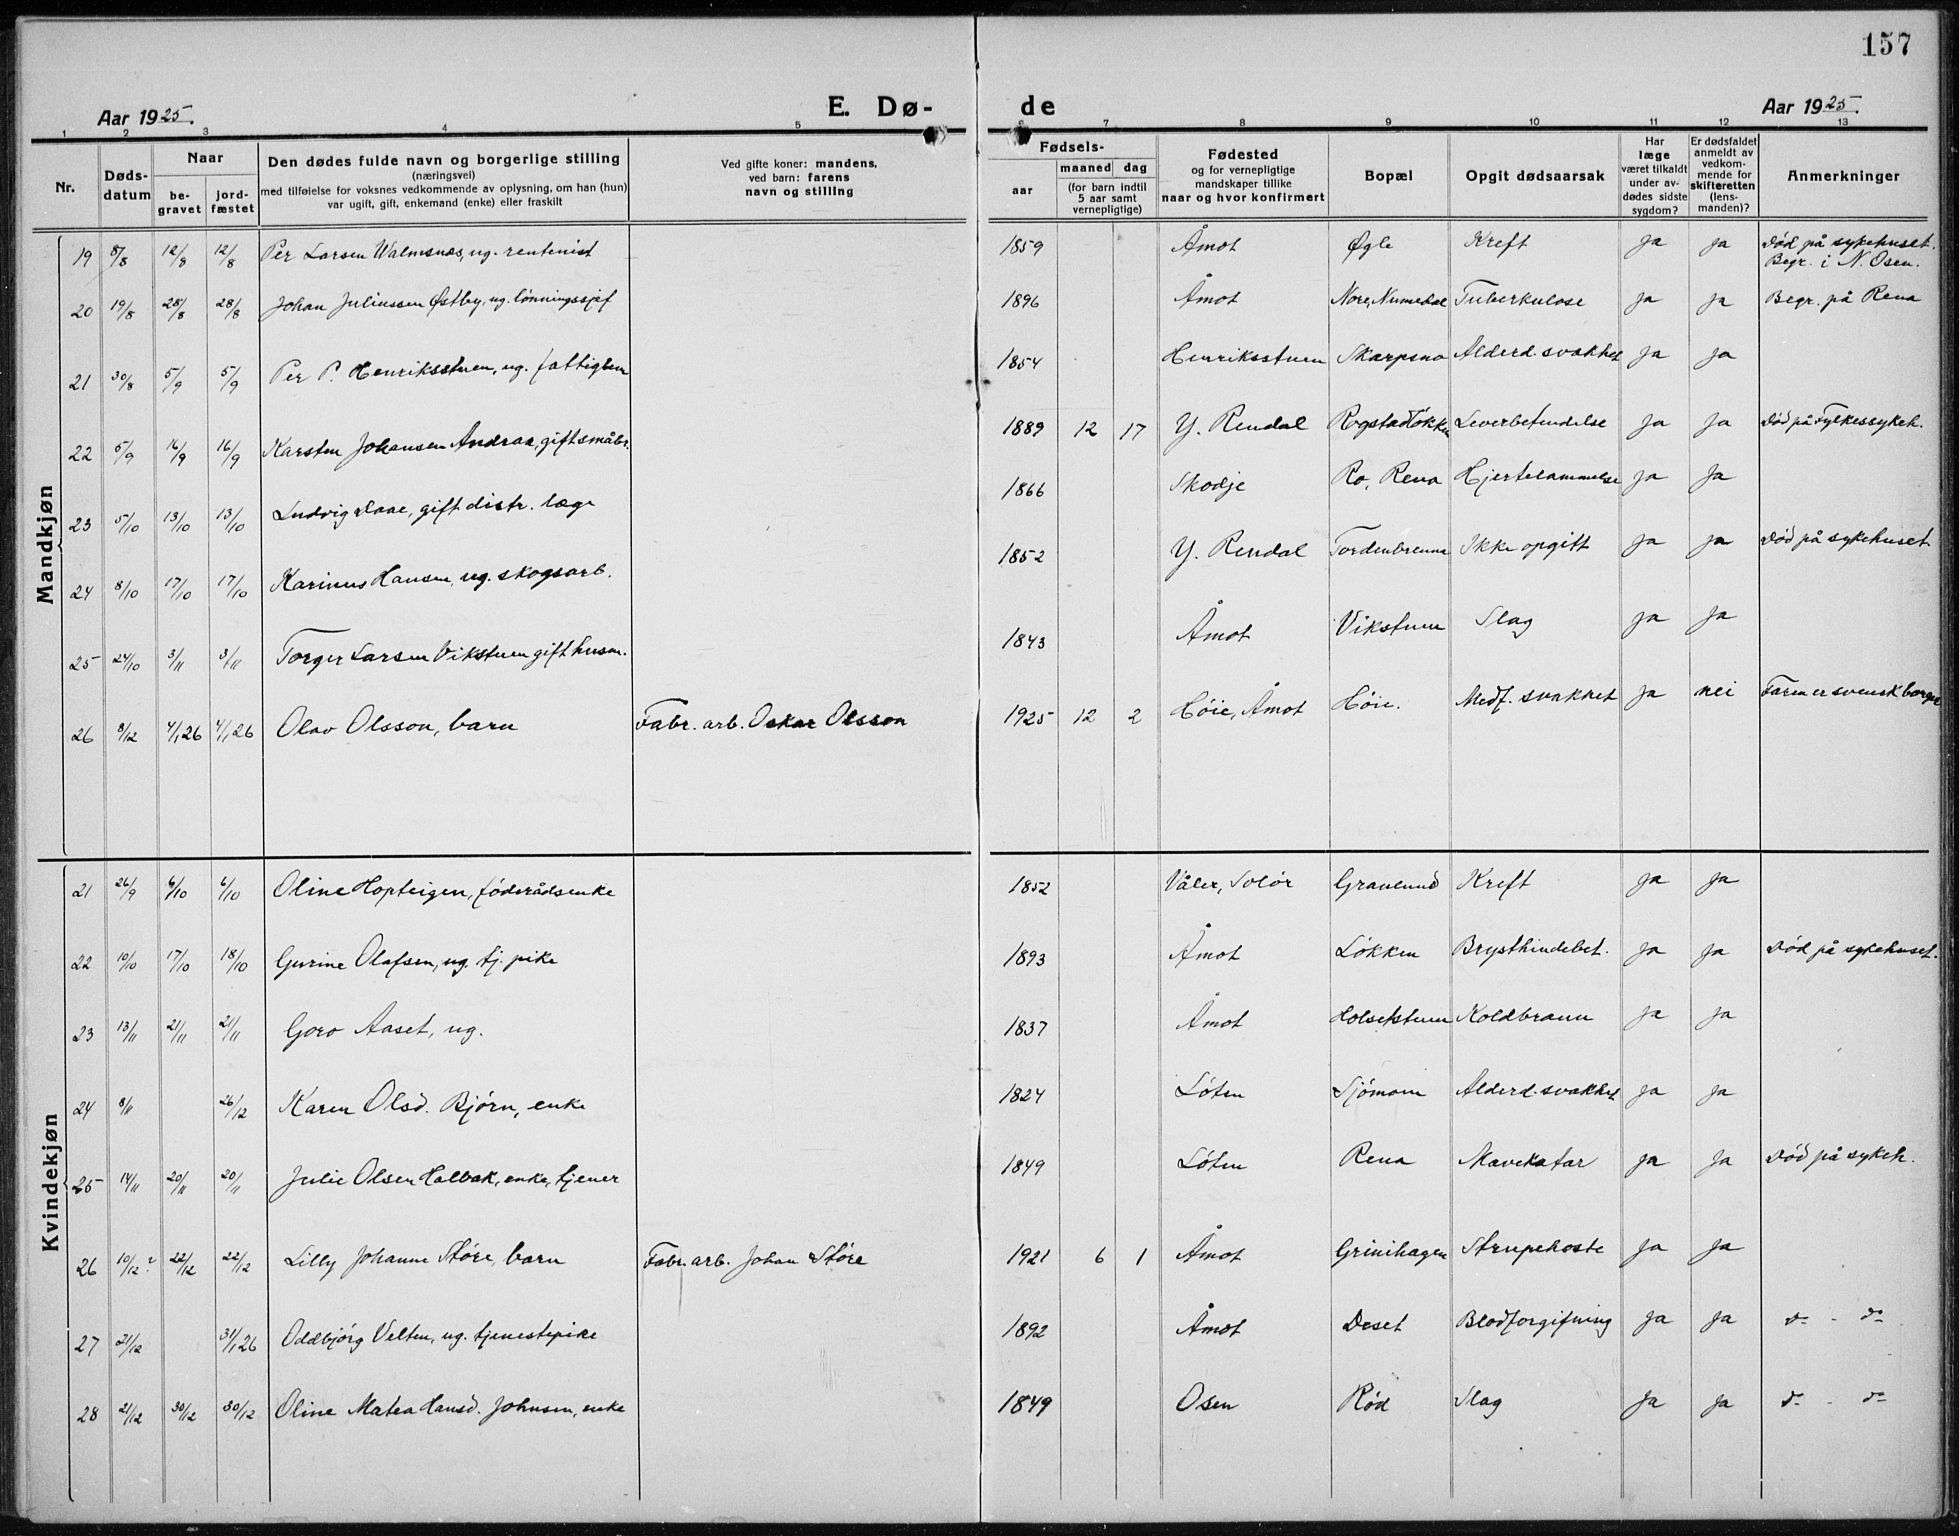 157
Aar 1925.
E. Dø-
de
Aar 1925.
1 2 3 4 5 6 7 8 9 10 11 12 13
Nr.
Døds-
datum
Naar
be-
gravet
jord-
fæstet
Den dødes fulde navn og borgerlige stilling
(næringsvei)
med tilføielse for voksnes vedkommende av oplysning, om han (hun)
var ugift, gift, enkemand (enke) eller fraskilt
Ved gifte koner: mandens,
ved barn: farens
navn og stilling
Fødsels-
aar
maaned dag
(for barn indtil
5 aar samt
vernepligtige)
Fødested
og for vernepligtige
mandskaper tillike
naar og hvor konfirmert
Bopæl
Opgit dødsaarsak
Har
læge
været tilkaldt
under av-
dødes sidste
sygdom?
Er dødsfaldet
anmeldt av
vedkom-
mende for
skifteretten
(lens-
manden)?
Anmerkninger
Mandkjøn
19 8/8 12/8 12/8 Per Larsen Walmsnæs, ug. rentenist 1859 Åmot Øgle Kreft ja ja Død på sykehuset.
Begr. i N. Osen.
20 19/8 28/8 28/8 Johan Juliussen Østby, ug. lönningssjef 1896 Åmot Nore, Numedal Tuberkulose ja ja Begr. på Rena
21 30/8 5/9 5/9 Per P. Henriksstuen, ug. fattiglem 1854 Henriksstuen Skarpsno Alderd. svakhet ja ja
22 5/9 16/9 16/9 Karsten Johansen Andraa, gift småbr. 1889 12 17 Y. Rendal Rogstadløkken Leverbetendelse ja ja Død på Fylkessykeh.
23 5/10 13/10 13/10 Ludvig Daae, gift distr. læge 1866 Skodje Ro, Rena Hjertelammelse ja ja
24 8/10 17/10 17/10 Karinus Hansen, ug. skogsarb. 1852 Y. Rendal Tordenbrenna Ikke opgitt ja ja Død på sykehuset
25 24/10 3/11 3/11 Torger Larsen Vikstuen gift husm. 1843 Åmot Vikstuen Slag ja ja
26 8/12 4/1 26 4/1 26 Olav Olsson, barn Fabr. arb. Oskar Olsson 1925 12 2 Höie, Åmot Höie. Medf. svakhet ja nei Faren er svensk borger
Kvindekjøn
21 26/9 6/10 6/10 Oline Hopteigen, föderådsenke 1852 Våler, Solör Gravlund Kreft ja ja
22 10/10 17/10 18/10 Gurine Olafsen, ug. tj. pike 1893 Åmot Lökken Brysthindebet. ja ja Död på sykehuset.
23 13/11 21/11 21/11 Goro Aaset, ug. 1837 Åmot Holsetstuen Koldbrann ja ja
24 8/11 26/12 Karen Olsd. Bjørn, enke 1824 Löten Sjömoen Alderd. svakhet ja ja
25 14/11 20/11 20/11 Julie Olsen Holbak, enke, tjener 1849 Löten Rena Mavekatar ja ja Död på sykeh.
26 10/12? 22/12 22/12 Lilly Johanne Störe, barn Fabr. arb. Johan Störe 1921 6 1 Åmot Grinihagen Strupehoste ja ja
27 21/12 31/1 26 Oddbjörg Velten, ug. tjenestepike 1892 Åmot Deset Blodforgifning ja ja do - do
28 21/12 30/12 30/12 Oline Matea Hansd. Johnsen, enke 1849 Osen Röd Slag ja ja do - do